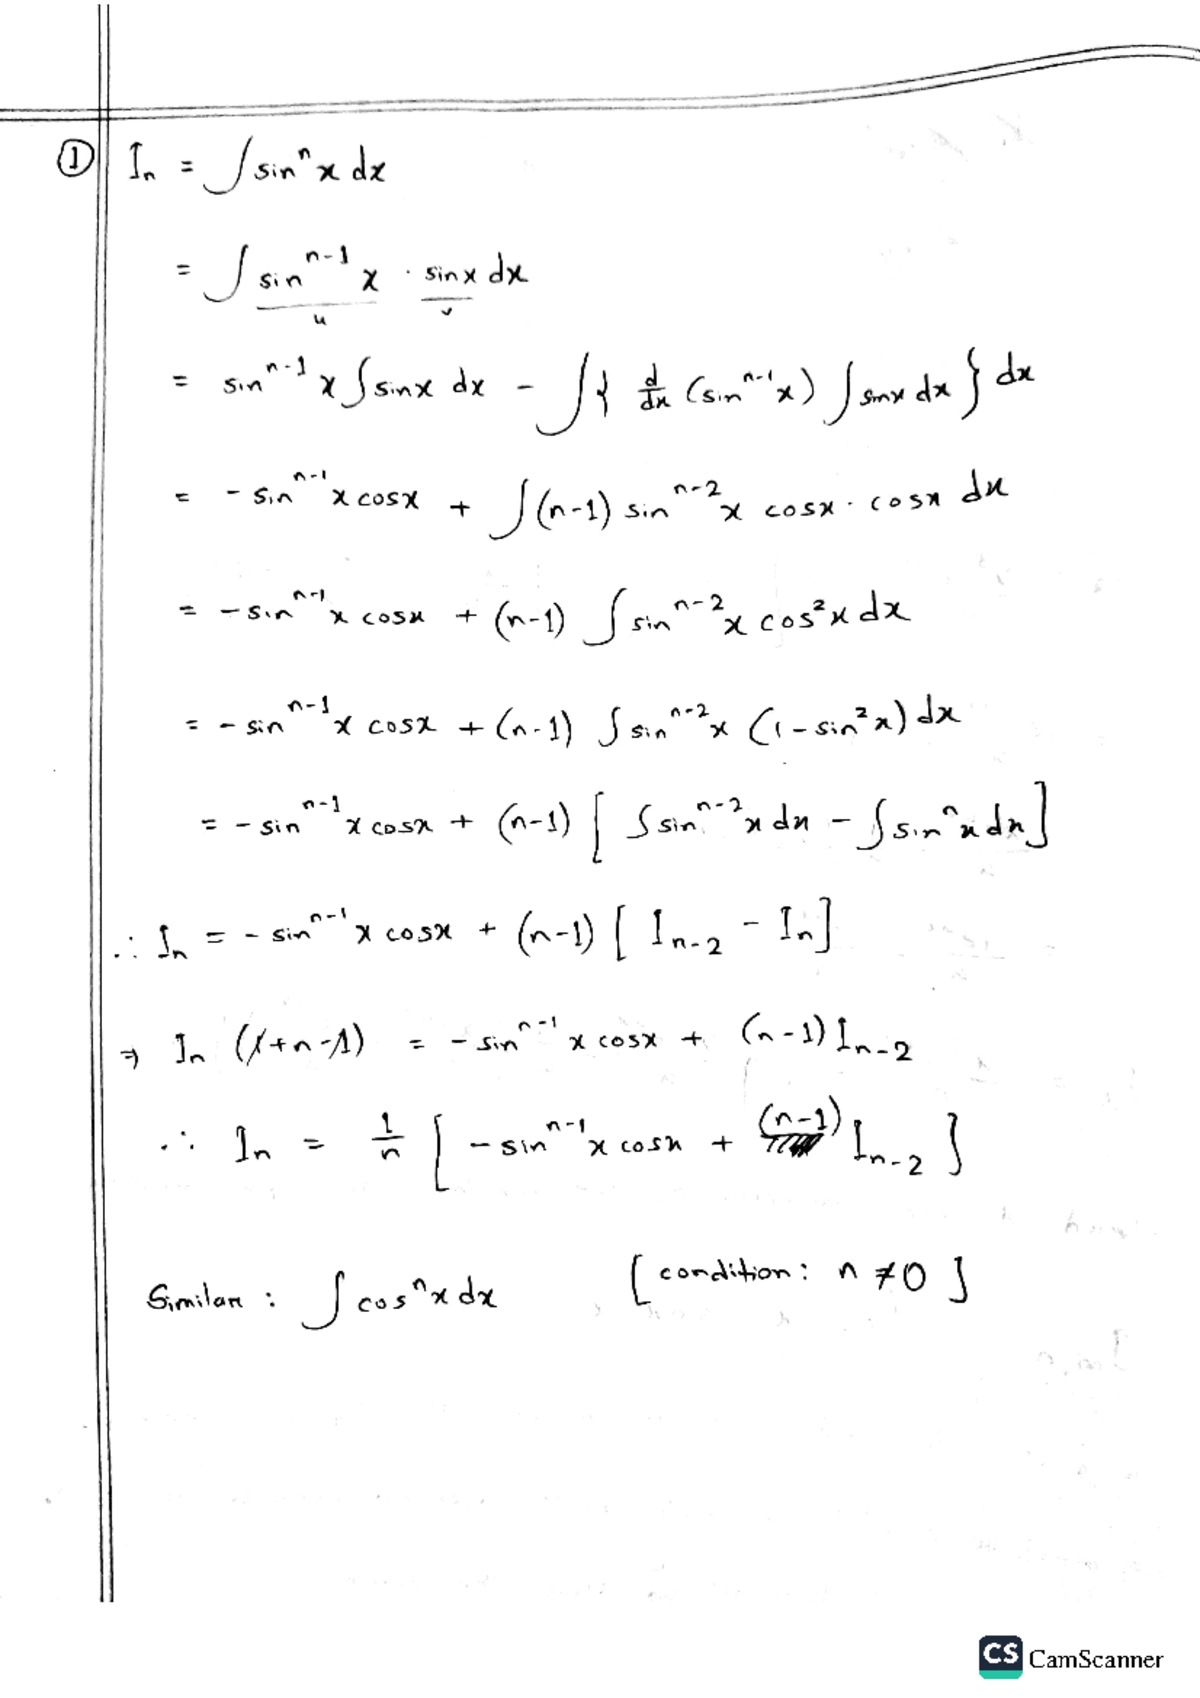 ① Iₙ = ∫ sinⁿ x dx
= ∫ sinⁿ⁻¹ x · sinx dx
u v
= sinⁿ⁻¹ x ∫ sinx dx - ∫ { d/dx (sinⁿ⁻¹ x) ∫ sinx dx } dx
= - sinⁿ⁻¹ x cosx + ∫ (n-1) sinⁿ⁻² x cosx · cosx dx
= - sinⁿ⁻¹ x cosx + (n-1) ∫ sinⁿ⁻² x cos² x dx
= - sinⁿ⁻¹ x cosx + (n-1) ∫ sinⁿ⁻² x (1 - sin² x) dx
= - sinⁿ⁻¹ x cosx + (n-1) [ ∫ sinⁿ⁻² x dx - ∫ sinⁿ x dx ]
∴ Iₙ = - sinⁿ⁻¹ x cosx + (n-1) [ Iₙ₋₂ - Iₙ ]
⇒ Iₙ (1+n-1) = - sinⁿ⁻¹ x cosx + (n-1) Iₙ₋₂
∴ Iₙ = 1/n [ - sinⁿ⁻¹ x cosx + (n-1) Iₙ₋₂ ]
Similar : ∫ cosⁿ x dx [ condition : n ≠ 0 ]
CS CamScanner